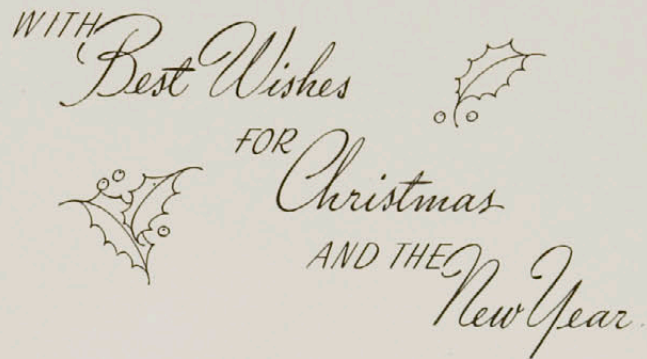 WITH
Best Wishes
FOR
Christmas
AND THE
New Year.